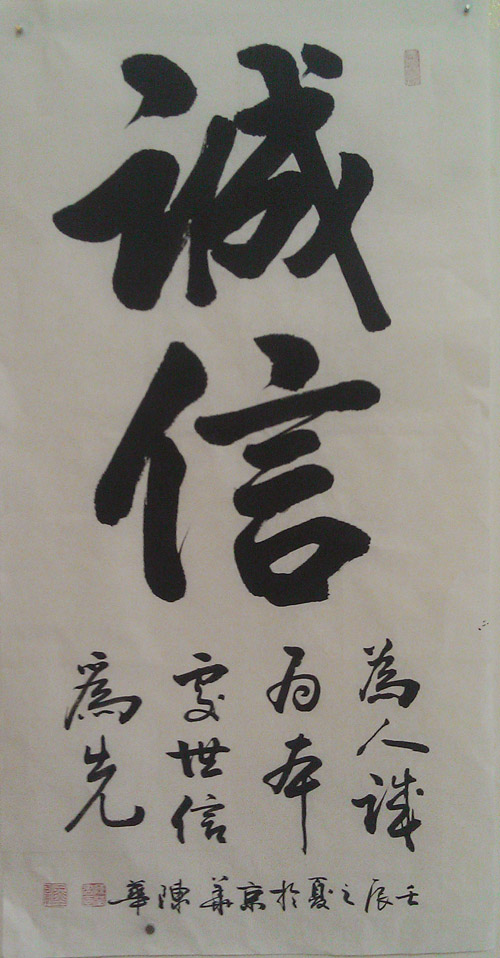 誠
信
為人誠
为本
處世信
爲先
壬辰之夏於京華陳華